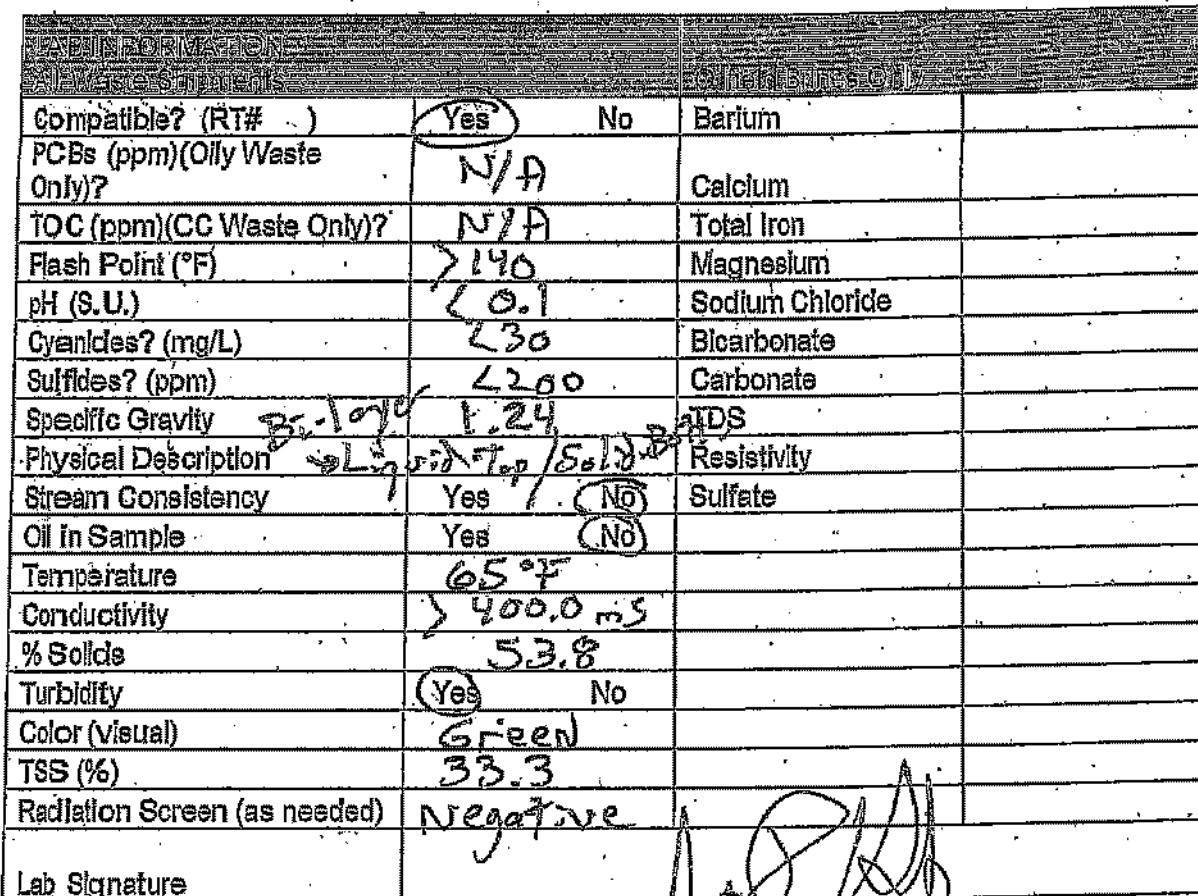 LAB INFORMATION
All Waste Shipments
Compatible? (RT# ) Yes No Barium
PCBs (ppm)(Oily Waste
Only)? N/A Calcium
TOC (ppm)(CC Waste Only)? N/A Total Iron
Flash Point (°F) >140 Magnesium
pH (S.U.) <0.1 Sodium Chloride
Cyanides? (mg/L) <30 Bicarbonate
Sulfides? (ppm) <200 Carbonate
Specific Gravity 1.24 TDS
Bi-layer
Physical Description →Liquid Top/Solid Resistivity
Stream Consistency Yes No Sulfate
Oil in Sample Yes No
Temperature 65°F
Conductivity >400.0 mS
% Solids 53.8
Turbidity Yes No
Color (visual) Green
TSS (%) 33.3
Radiation Screen (as needed) Negative
Lab Signature